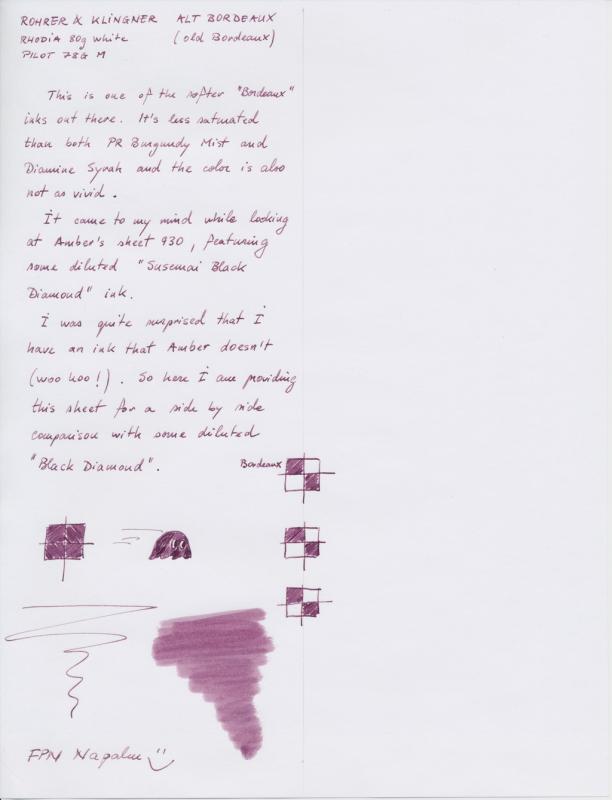 ROHRER & KLINGNER ALT BORDEAUX
RHODIA 80g white (old Bordeaux)
PILOT 78G M
This is one of the softer "Bordeaux"
inks out there. It's less saturated
than both PR Burgundy Mist and
Diamine Syrah and the color is also
not as vivid.
It came to my mind while looking
at Amber's sheet 930, featuring
some diluted "Susemai Black
Diamond" ink.
I was quite surprised that I
have an ink that Amber doesn't
(woo hoo!). So here I am providing
this sheet for a side by side
comparison with some diluted
"Black Diamond".
Bordeaux
FPN